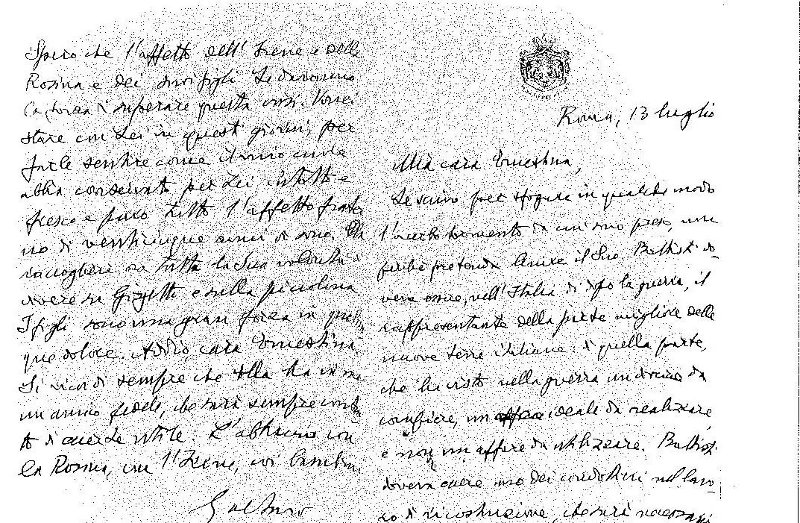 Spero che l'affetto dell'Irene e della
Rosina e dei suoi figli Le daranno
la forza di superare questa crisi. Vorrei
stare con Lei in questi giorni, per
farle sentire come il mio cuore
abbia conservato per Lei intatto e
fresco e puro tutto l'affetto frater
no di venticinque anni or sono. Ella
raccogliere ora tutta la Sua volontà a
vivere su Gigetto e sulla piccolina
I figli sono una gran forza in
que dolore. Addio, cara Ernestina
Si ricordi sempre che Ella ha in me
un amico fedele, che sarà sempre
to di esserLe utile. L'abbraccio con
la Rosina, con l'Irene, coi bambini
Roma, 13 luglio
Mia cara Ernestina,
Le scrivo per sfogare in qualche modo
l'acerbo tormento da cui sono preso, non
perché pretenda lenire il Suo. Battisti do
veva essere, nell'Italia di dopo la guerra, il
rappresentante della parte migliore delle
nuove terre italiane: di quella parte,
che ha visto nella guerra un dovere da
compiere, un ideale da realizzare
e non un affare da utilizzare. Battisti
doveva essere uno dei condottieri nel lavo
ro di ricostruzione, che sarà necessari